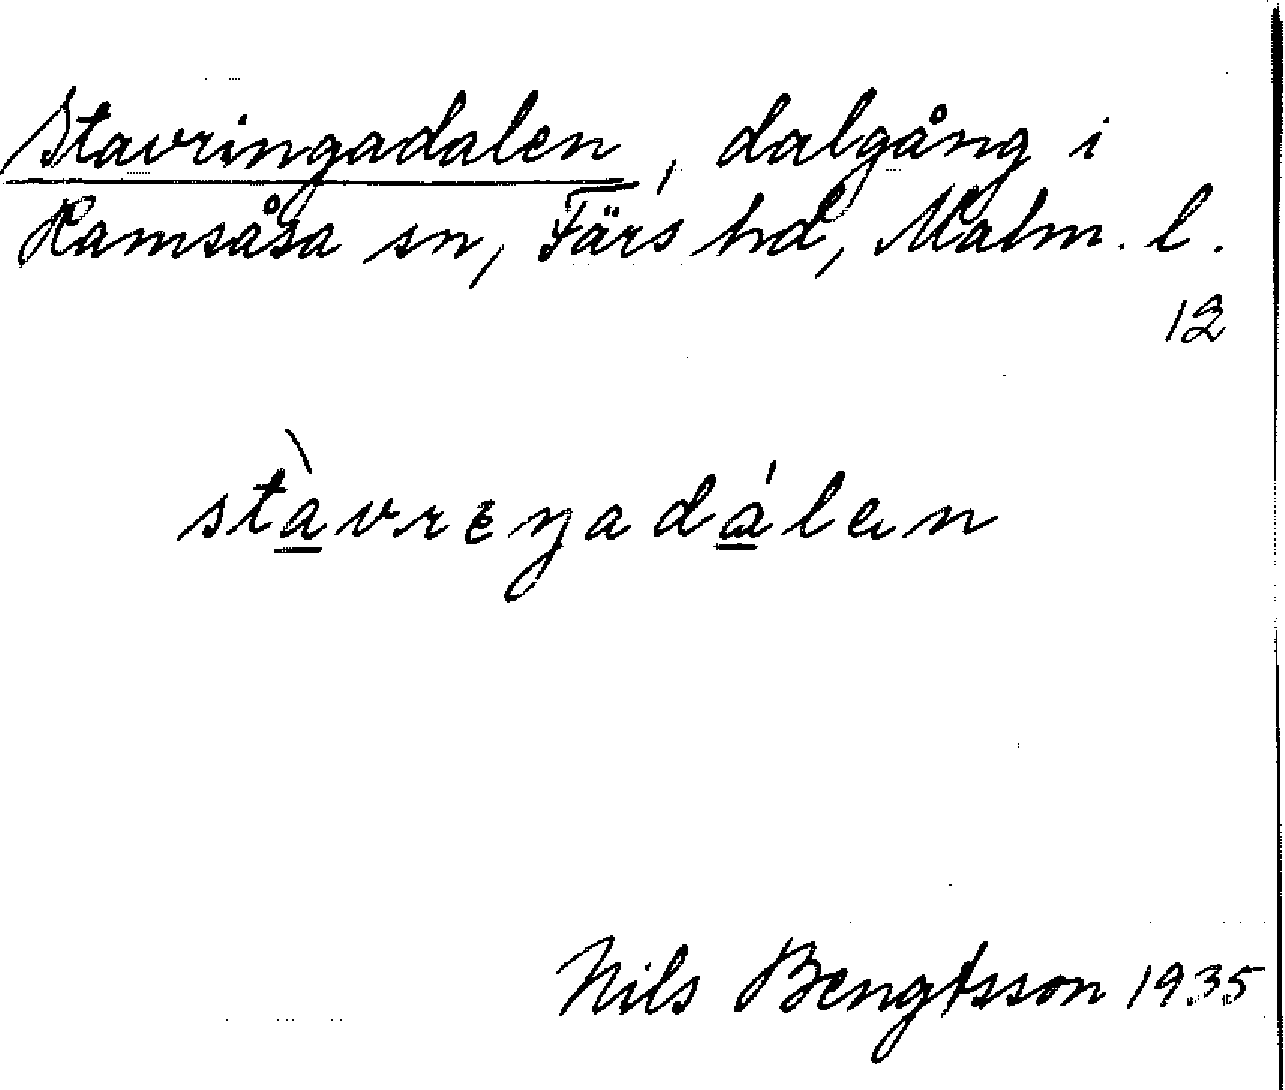 Stavringadalen, dalgång i
Ramsåsa sn, Färs hd, Malm. l.
12
stàvrɛŋadálen
Nils Bengtsson 1935